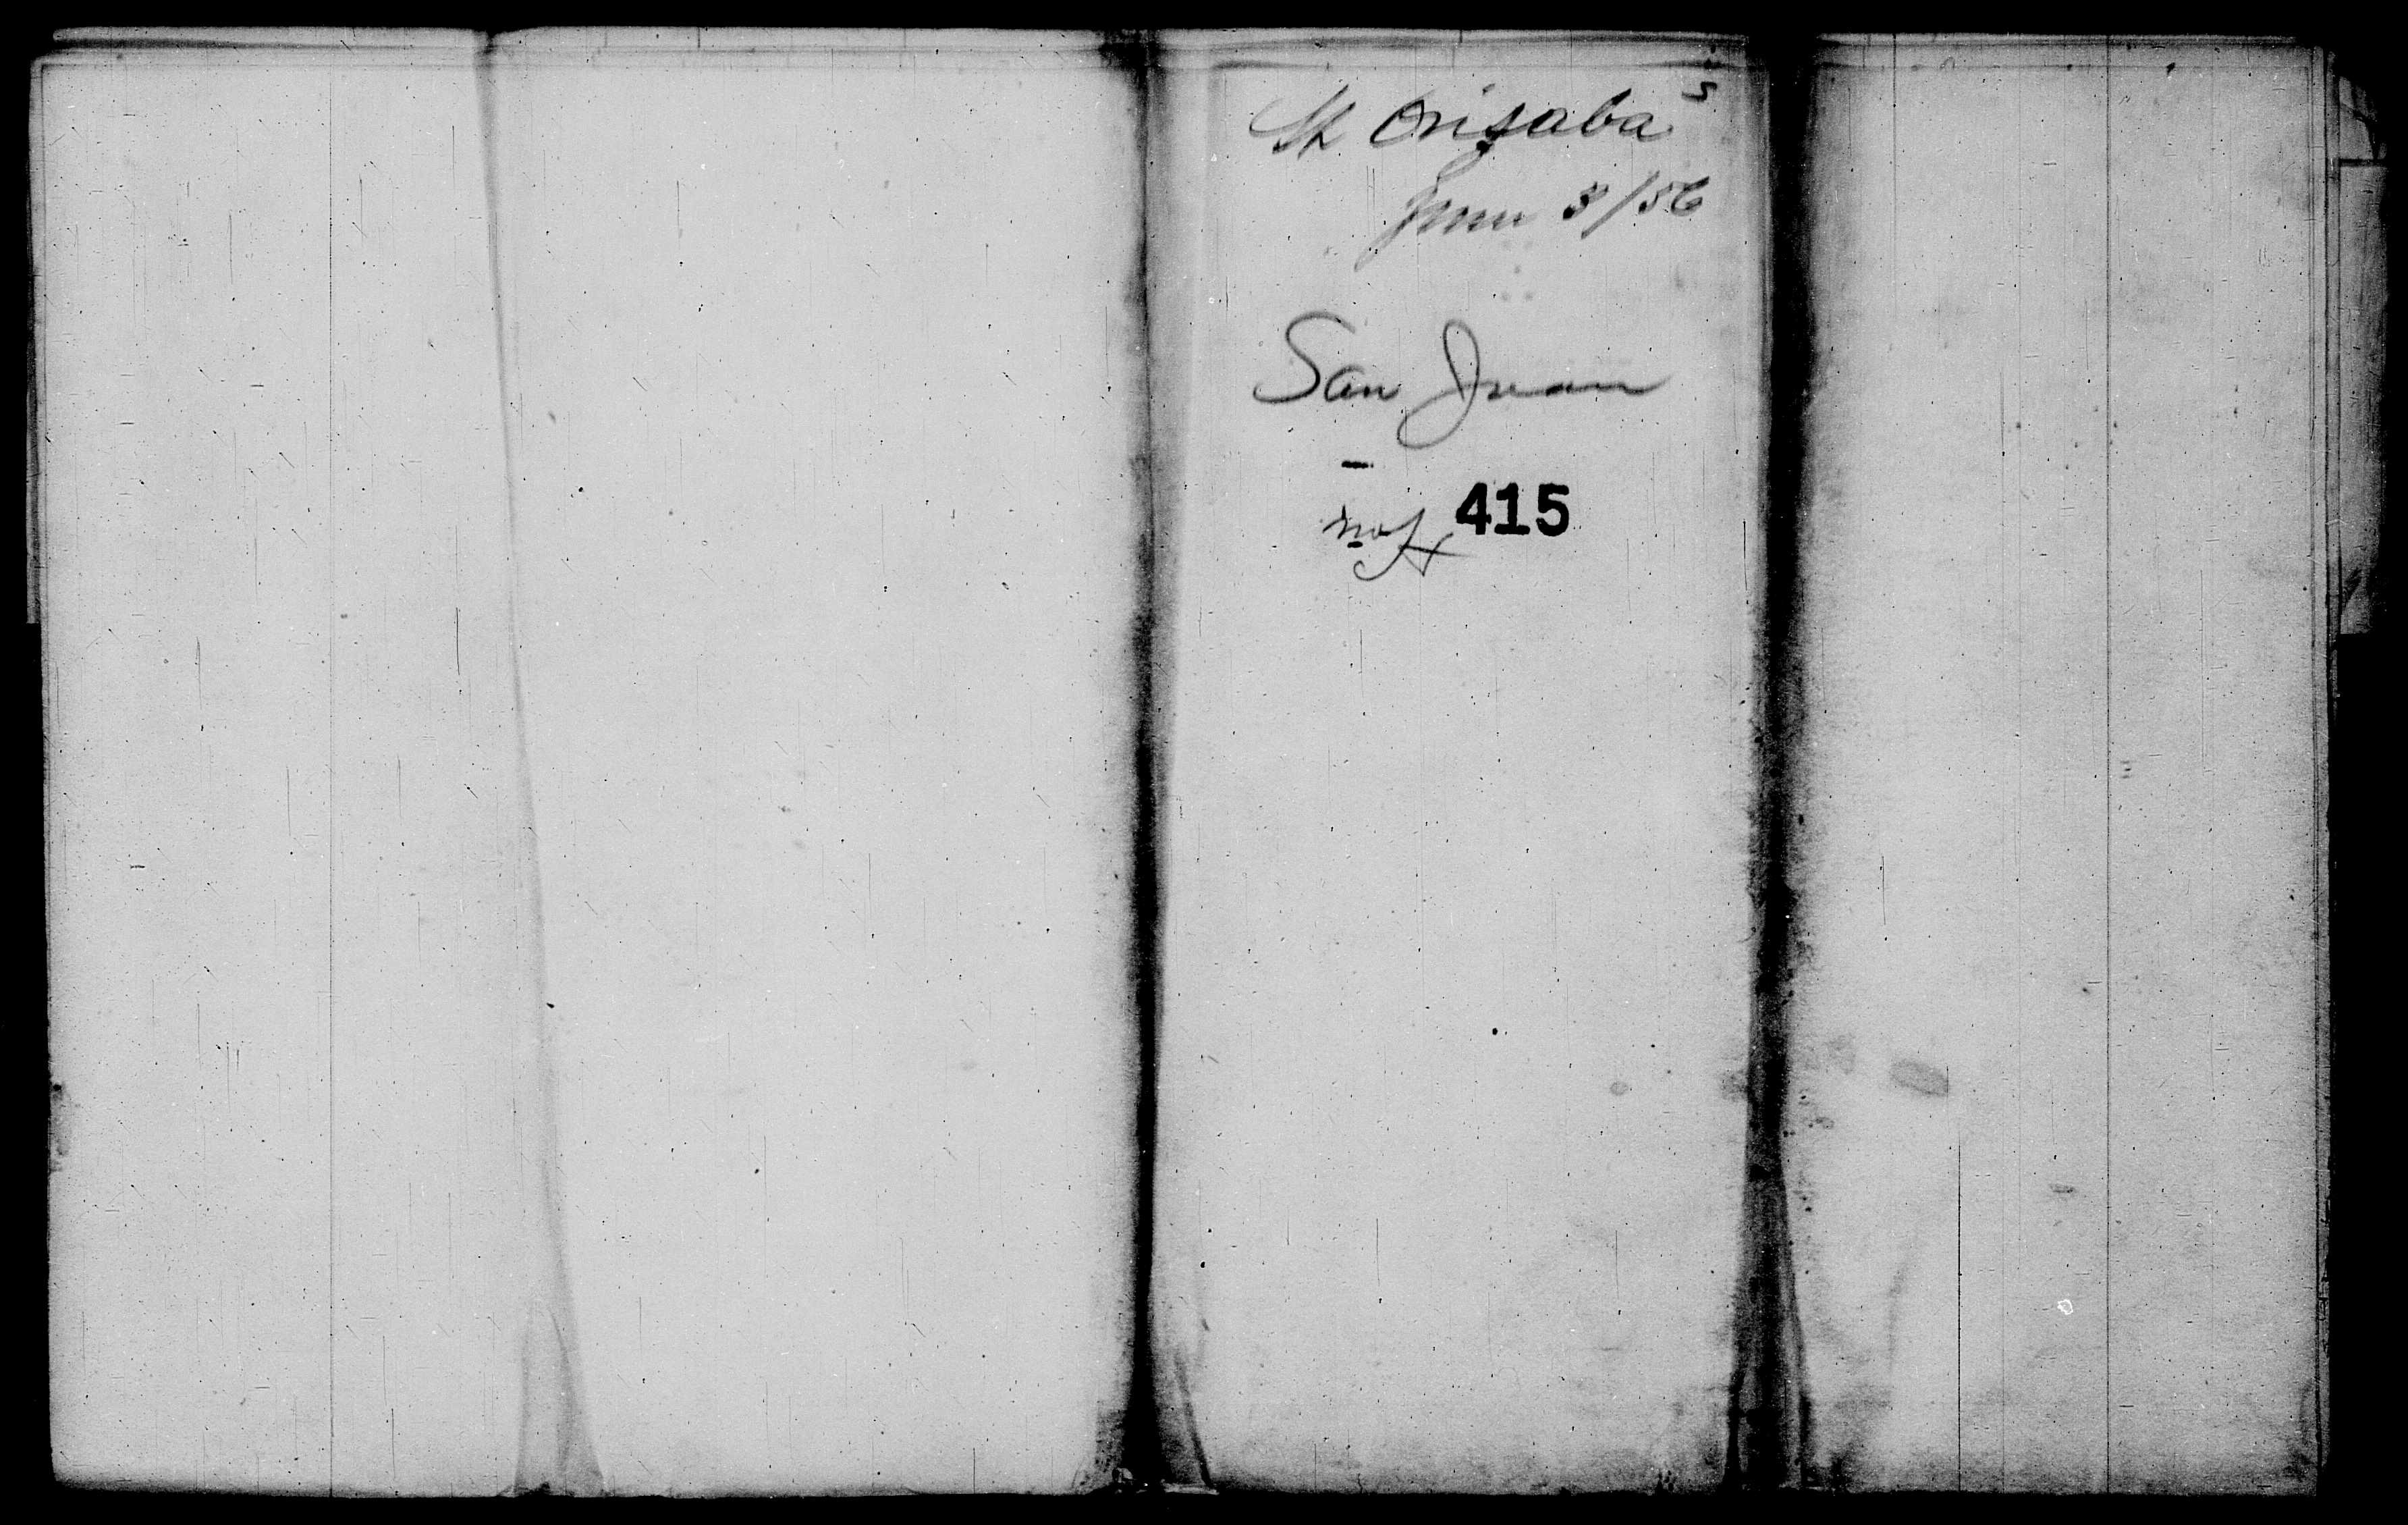 St Orisaba
June 3/56
San Juan
415